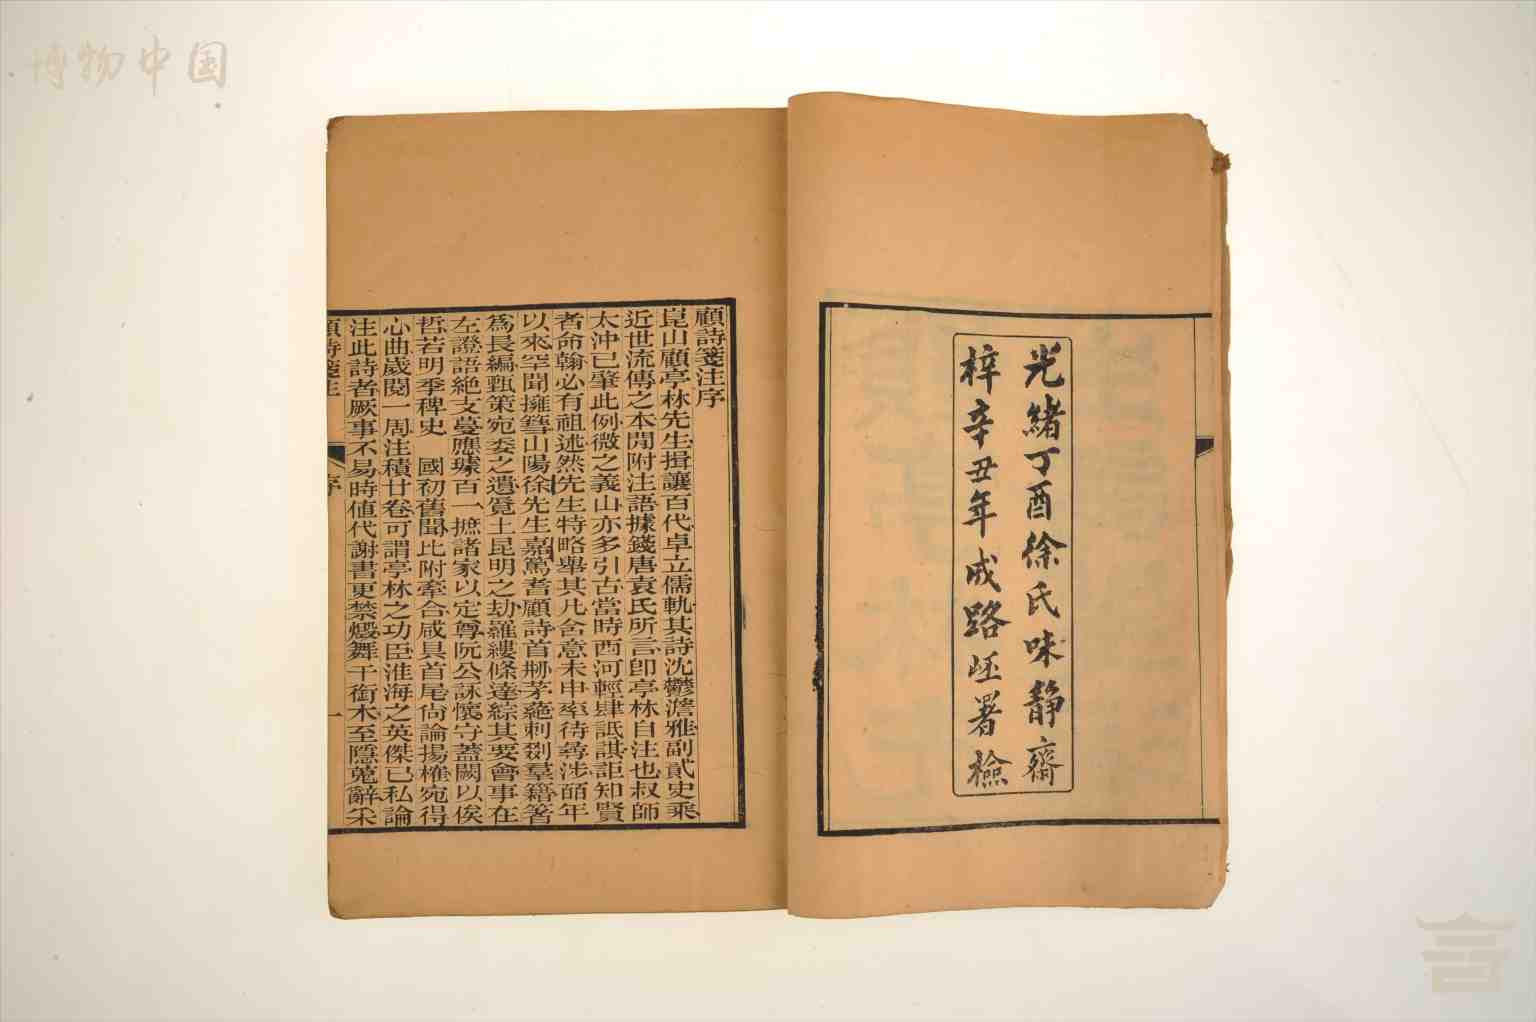 博物中国
光緒丁酉徐氏味靜齋
梓辛丑年成路岯署檢
顧詩箋注序
崑山顧亭林先生揖讓百代卓立儒軌其詩沈鬱澹雅副貳史乘
近世流傳之本閒附注語據錢唐袁氏所言卽亭林自注也叔師
太沖已肇此例微之義山亦多引古當時西河輕肆詆諆詎知賢
者命翰必有祖述然先生特略舉其凡含意未申率待尋涉皕年
以來罕聞擁篲山陽徐先生嘉篤耆顧詩首刱茅蕝剌剟羣籍箸
爲長編甄策宛委之遺覓土昆明之劫羅縷條達綜其要會事在
左證語絶支蔓應璩百一摭諸家以定尊阮公詠懷守蓋闕以俟
哲若明季稗史 國初舊聞比附牽合咸具首尾尙論揚榷宛得
心曲歲閱一周注積廿卷可謂亭林之功臣淮海之英傑已私論
注此詩者厥事不易時値代謝書更禁燬舞干銜木至隱蒐辭朱
顧詩箋注
序
一